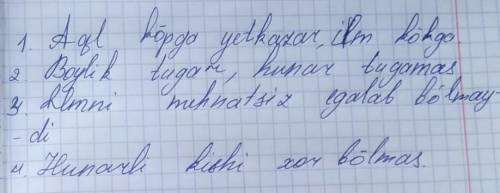 1. Aql kôpga yetkazar, ilm kôkga.
2 Boylik tugar, hunar tugamas
3 Ilmni mehnatsiz egalab bôlmay-
-di
4. Hunarli kishi xor bôlmas.